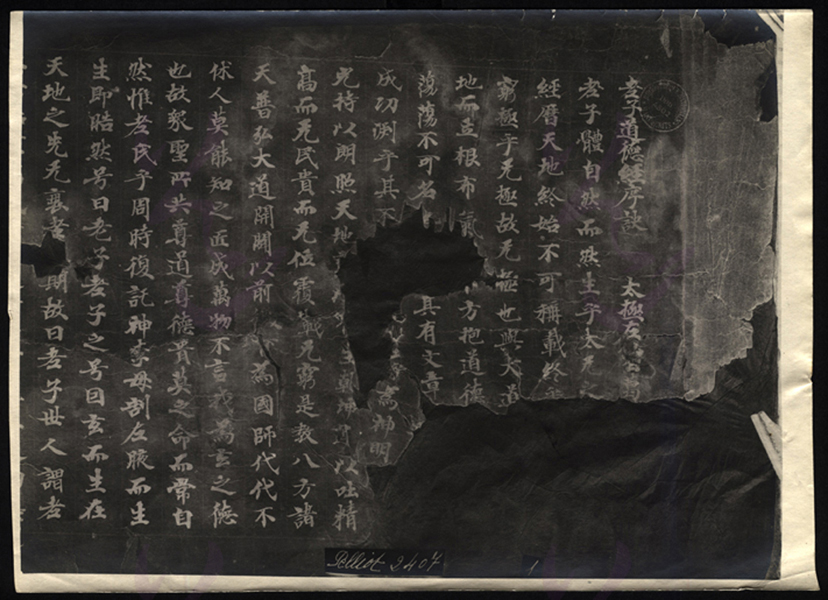 老子道德經序訣 太極左
老子體自然而然生乎太无之
經歷天地終始不可稱載終
窮極乎无極故无極也與大道
地而立根布氣 方抱道德
蕩蕩不可名 其有文章
成功渕乎其不 為神明
光持以朗照天地 以吐精
髙而无民貴而无位覆載无窮是教八方諸
天普弘大道開闢以前 為國師代代不
休人莫能知之匠成萬物不言我為玄之德
也故眾聖所共尊道尊德貴莫之命而常自
然惟老氏乎周時復託神李母剖左腋而生
生即皓然号曰老子老子之号因玄而生在
天地之先无衰老 期故曰老子世人謂老
Pelliot 2407
1